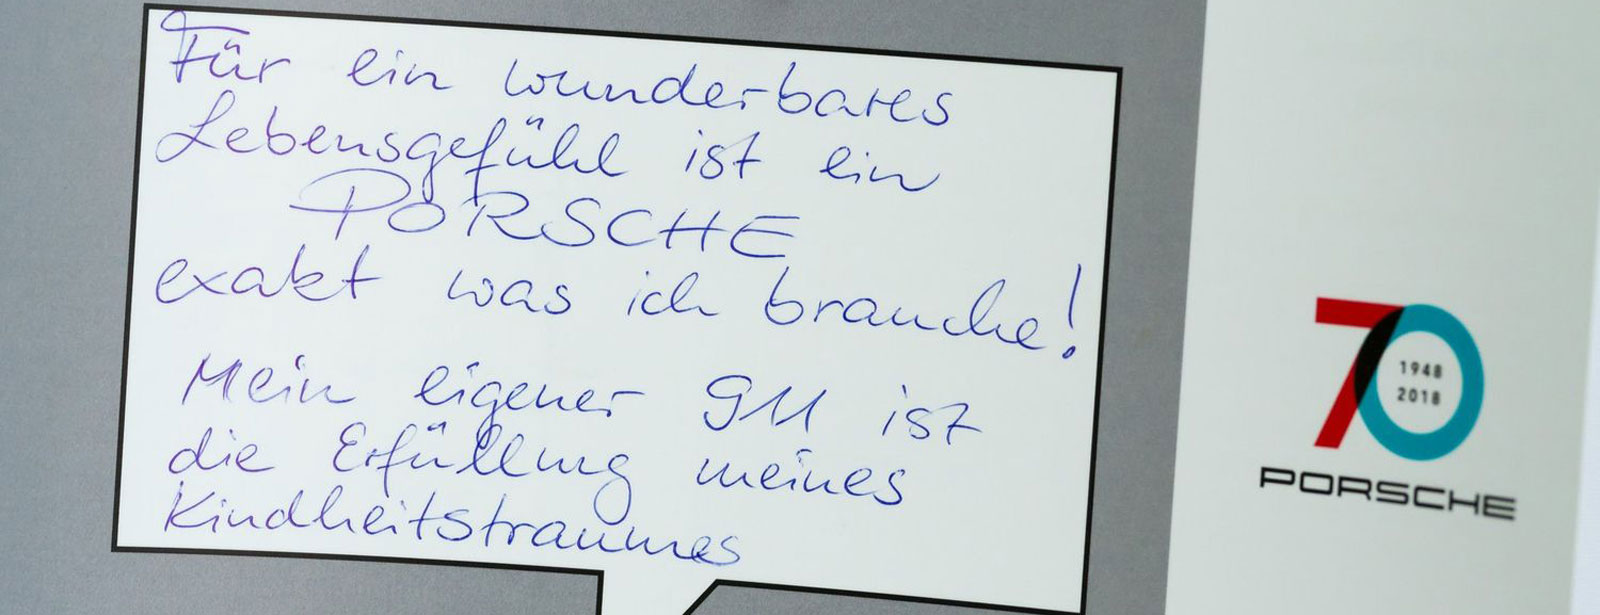 Für ein wunderbares
Lebensgefühl ist ein
PORSCHE
exakt was ich brauche!
Mein eigener 911 ist
die Erfüllung meines
Kindheitstraumes
70
1948
2018
PORSCHE